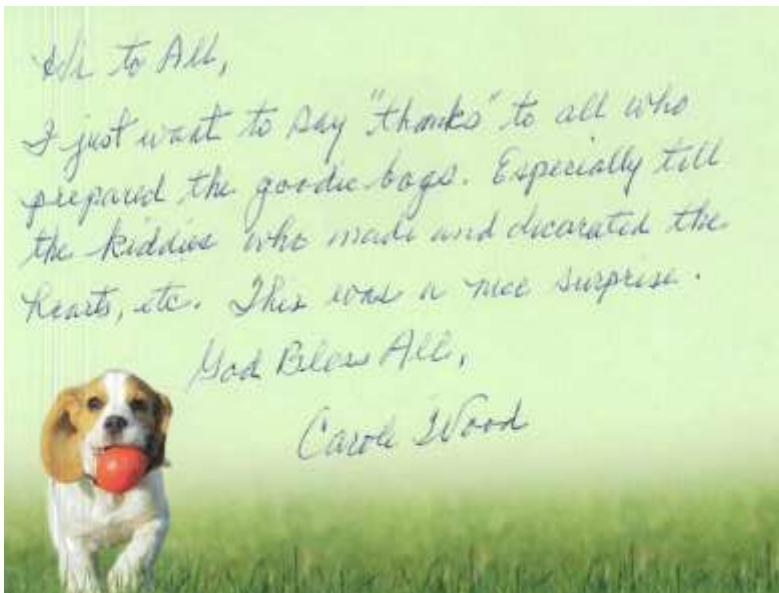 Hi to All,
I just want to say "thanks" to all who
prepared the goodie bags. Especially tell
the kiddies who made and decorated the
hearts, etc. This was a nice surprise.
God Bless All,
Carole Wood